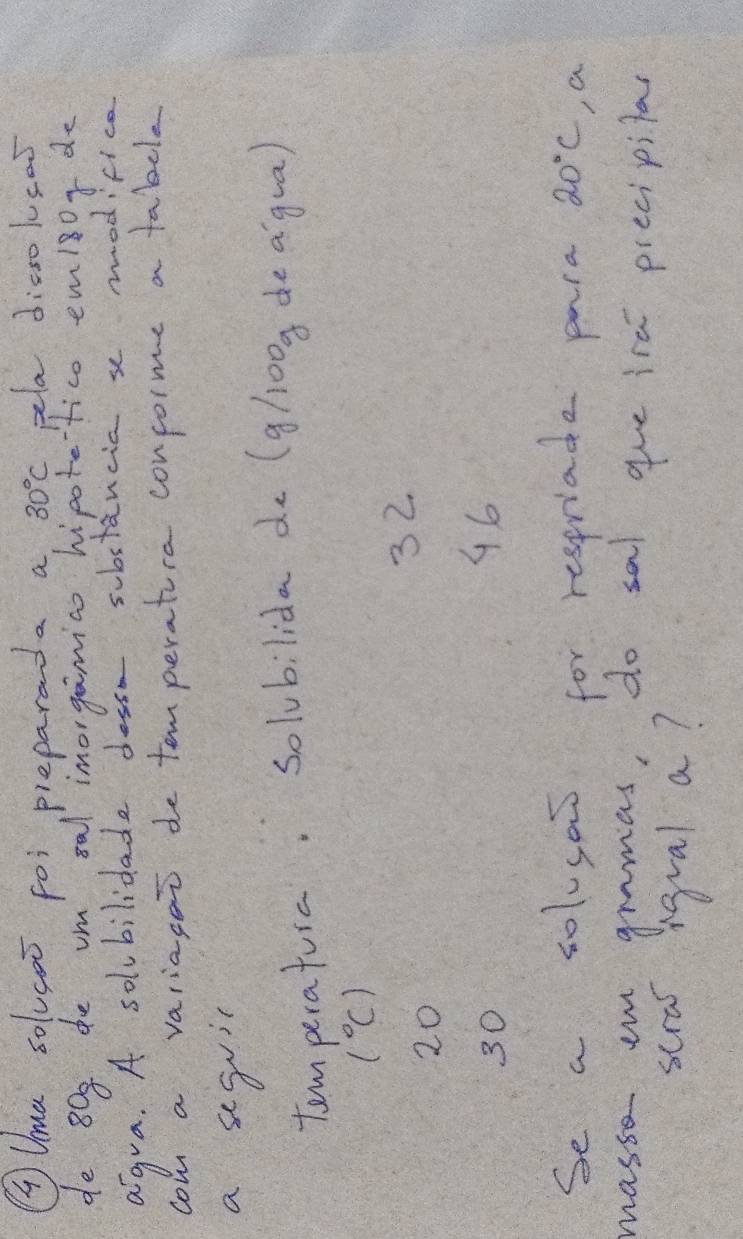 ④ Uma solução foi preparada a 30°C pela dissolução
de 80g de um sal inorgânico hipotético em 180g de
água. A solubilidade dessa substância se modifica
com a variação de temperatura conforme a tabela
a seguir
Temperatura. Solubilida de (g/100g de água)
(°C)
20 32
30 46
Se a solução for resfriada para 20°C, a
massa em gramas, do sal que irá precipitar
será igual a?